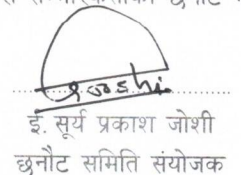 joshi
ई. सूर्य प्रकाश जोशी
छनौट समिति संयोजक